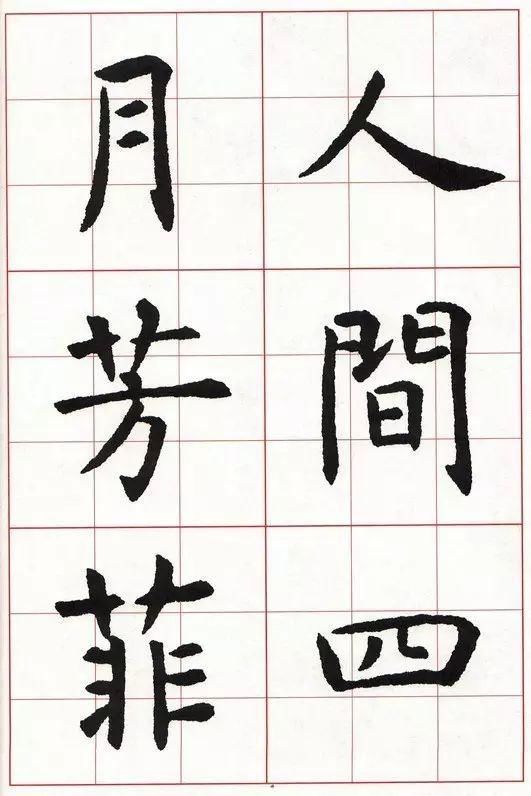 人間四
月芳菲